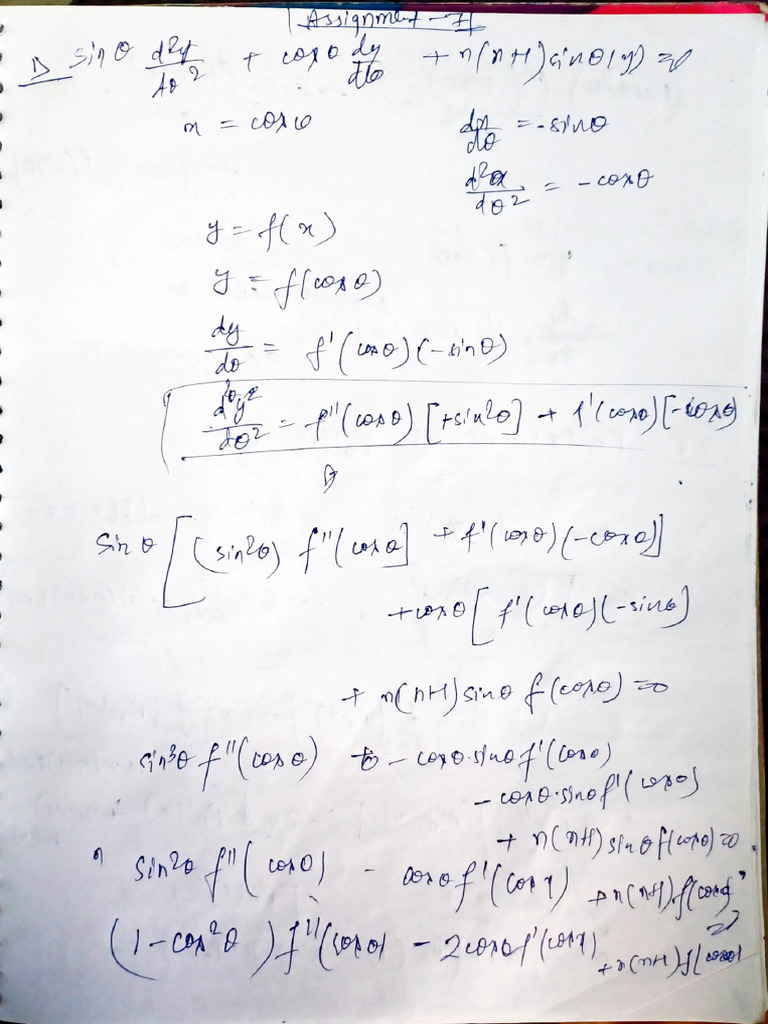 Assignment - 7
1) sinθ d²y/dθ² + cosθ dy/dθ + n(n+1) sinθ(y) = 0
x = cosθ dx/dθ = -sinθ
d²x/dθ² = -cosθ
y = f(x)
y = f(cosθ)
dy/dθ = f'(cosθ)(-sinθ)
d²y/dθ² = f''(cosθ) [+sin²θ] + f'(cosθ)[-cosθ]
sinθ [(sin²θ) f''(cosθ] + f'(cosθ)(-cosθ)]
+cosθ [f'(cosθ)(-sinθ]
+ n(n+1) sinθ f(cosθ) = 0
sin³θ f''(cosθ) - cosθ·sinθ f'(cosθ)
- cosθ·sinθ f'(cosθ)
+ n(n+1) sinθ f(cosθ) = 0
sin²θ f''(cosθ) - cosθ f'(cosx) + n(n+1) f(cosθ)
= 0
(1-cos²θ) f''(cosθ) - 2cosθ f'(cosx) + n(n+1) f(cosθ)